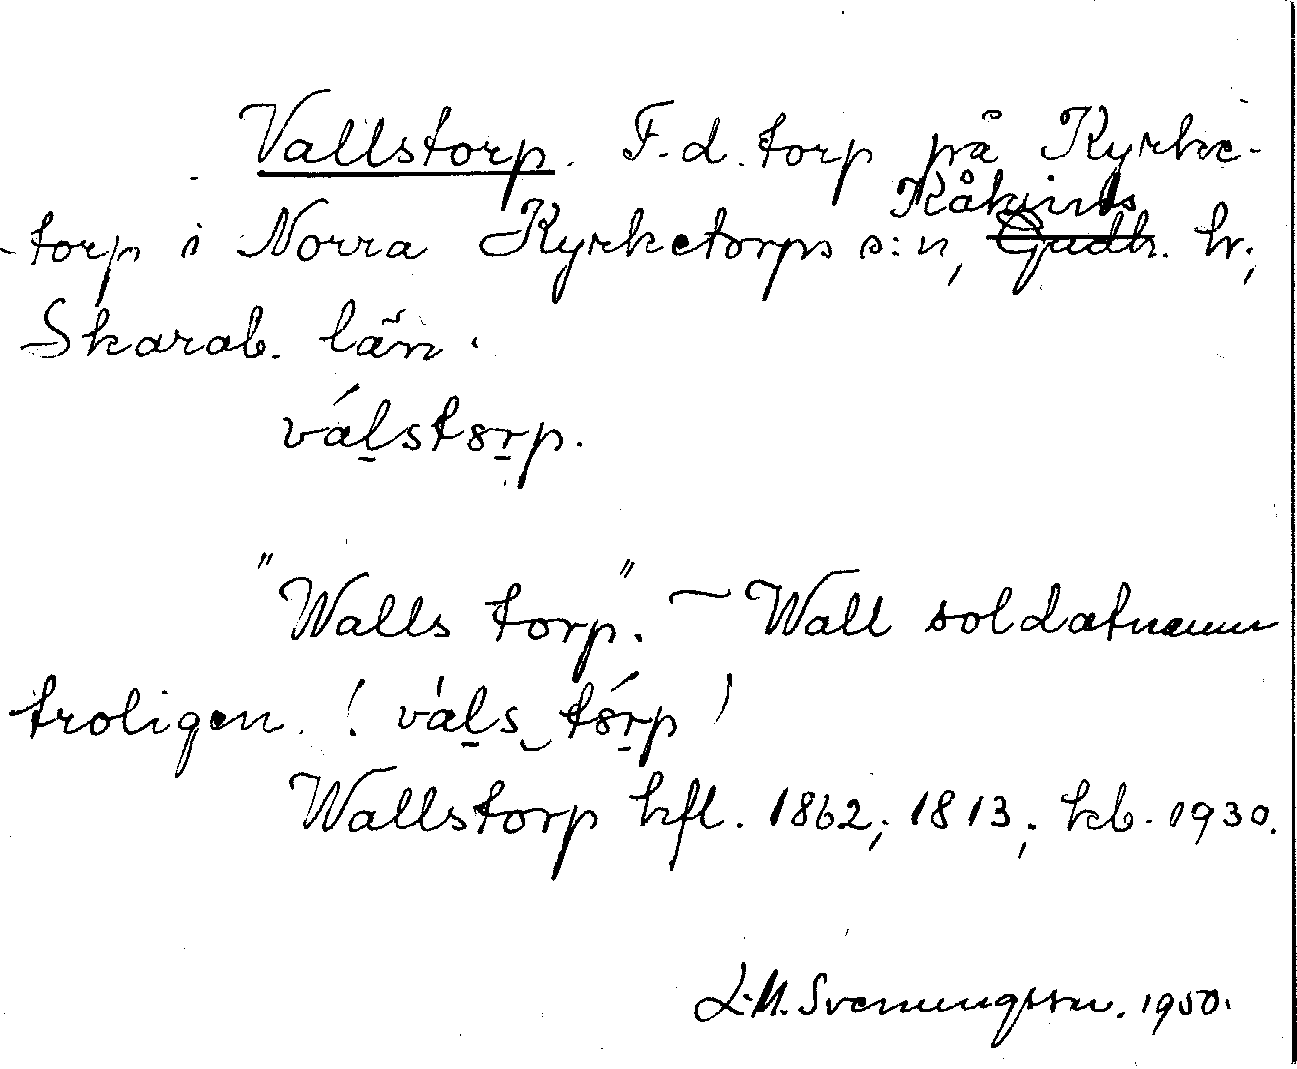 Vallstorp. F.d. torp på Kyrke-
torp i Norra Kyrketorps s:n, Kåkinds hr,
Skarab. län.
vál̲stor̲p.
"Walls torp." ~ Wall soldatnamn
troligen. ( vál̲s‿tór̲p )
Wallstorp hfl. 1862; 1813; kb. 1930.
L.M. Svenungsson. 1950.